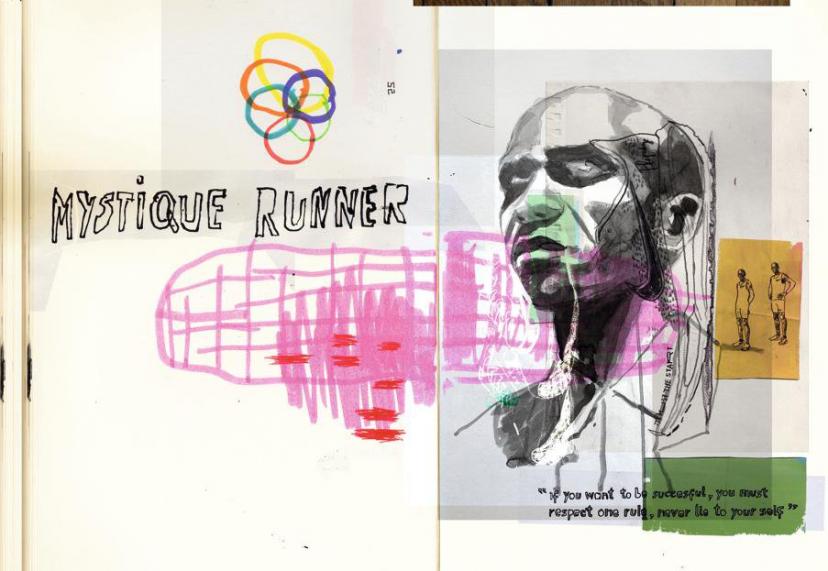 25
MYSTIQUE RUNNER
"if you want to be succesful, you must
respect one rule, never lie to your self"